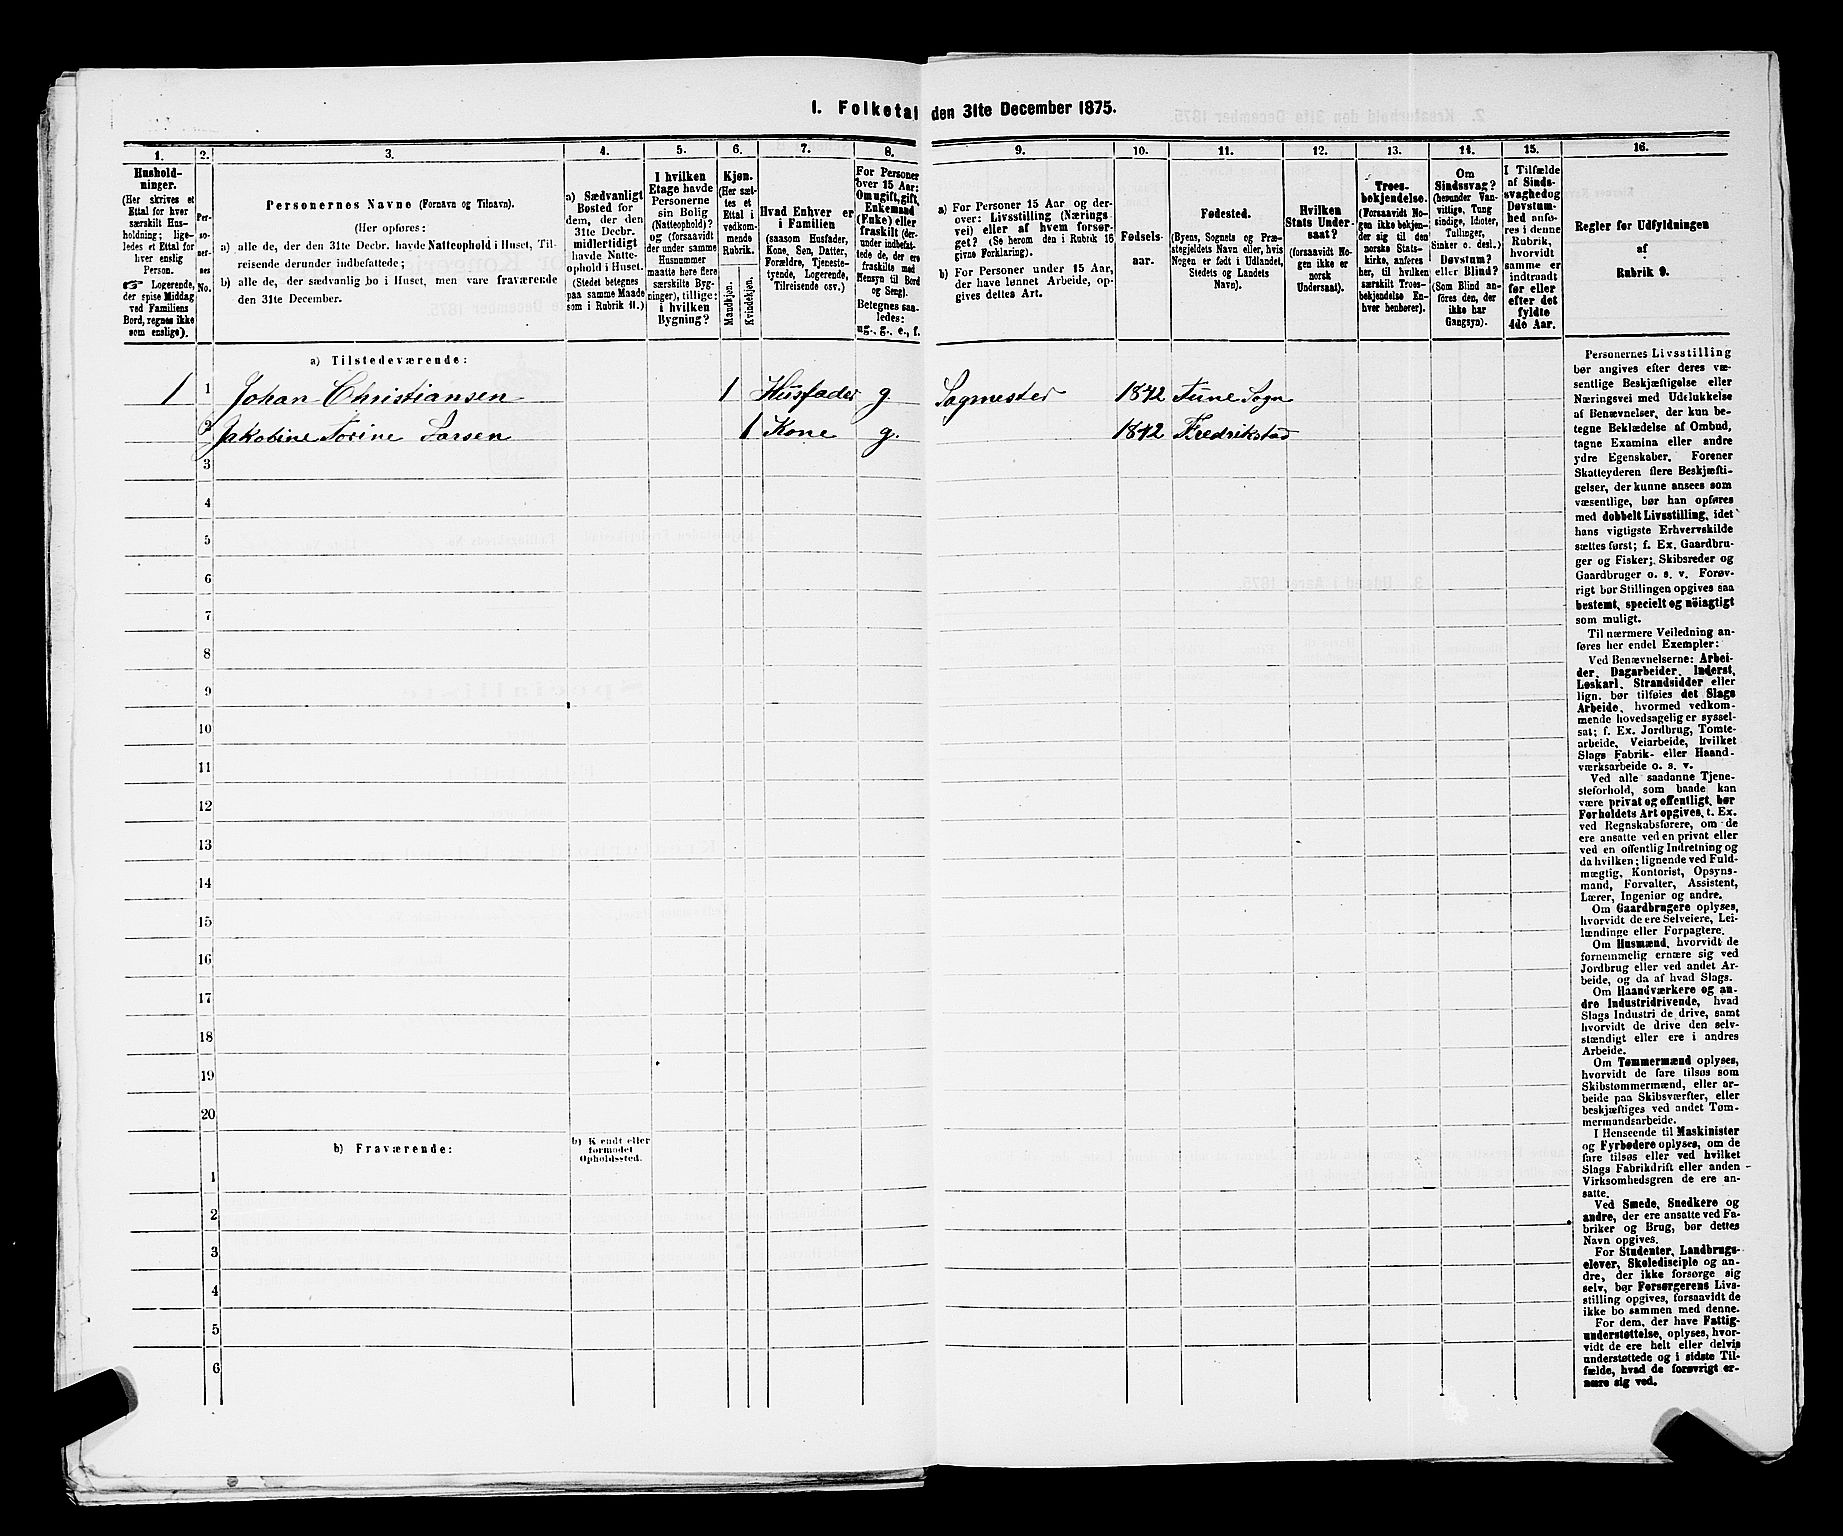 I. Folketal den 31te December 1875.
1.
Hushold-
ninger.
(Her skrives et
Ettal for hver
særskilt Hus-
holdning; lige-
ledes et Ettal for
hver enslig
Person.
☛ Logerende,
der spise Middag
ved Familiens
Bord, regnes ikke
som enslige).
2.
Per-
so-
ner-
nes
No.
3.
Personernes Navne (Fornavn og Tilnavn).
(Her opføres:
a) alle de, der den 31te Decbr. havde Natteophold i Huset, Til-
reisende derunder indbefattede;
b) alle de, der sædvanlig bo i Huset, men vare fraværende
den 31te December.
4.
a) Sædvanligt
Bosted for
dem, der den
31te Decbr.
midlertidigt
havde Natte-
ophold i Huset.
(Stedet betegnes
paa samme Maade
som i Rubrik 11.)
5.
I hvilken
Etage havde
Personerne
sin Bolig
(Natteophold)?
og (forsaavidt
der under samme
Husnummer
maatte høre flere
særskilte Byg-
ninger), tillige:
i hvilken
Bygning?
6.
Kjøn.
(Her sæt-
tes et
Ettal i
vedkom-
mende
Rubrik.
Mandkjøn.
Kvindekjøn.
7.
Hvad Enhver er
i Familien
(saasom Husfader,
Kone, Søn, Datter,
Forældre, Tjeneste-
tyende, Logerende,
Tilreisende osv.)
8.
For Personer
over 15 Aar:
Om ugift, gift,
Enkemand
(Enke) eller
fraskilt (der-
under indbefat-
tede de, der ere
fraskilte med
Hensyn til Bord
og Seng).
Betegnes saa-
ledes:
ug., g., e., f.
9.
a) For Personer 15 Aar og der-
over: Livsstilling (Nærings-
vei) eller af hvem forsør-
get? (Se herom den i Rubrik 16
givne Forklaring).
b) For Personer under 15 Aar,
der have lønnet Arbeide, op-
gives dettes Art.
10.
Fødsels-
aar.
11.
Fødested.
(Byens, Sognets og Præ-
stegjeldets Navn eller, hvis
Nogen er født i Udlandet,
Stedets og Landets
Navn).
12.
Hvilken
Stats Under-
saat?
(forsaavidt No-
gen ikke er
norsk
Undersaat).
13.
Troes-
bekjendelse.
(Forsaavidt No-
gen ikke bekjen-
der sig til den
norske Stats-
kirke, anføres
her, til hvilken
særskilt Troes-
bekjendelse En-
hver henhører).
14.
Om
Sindssvag?
(herunder Van-
vittige, Tung
sindige, Idioter,
Tullinger,
Sinker o. desl.)
Døvstum?
eller Blind?
(Som Blind an-
føres den, der
ikke har
Gangsyn).
15.
I Tilfælde
af Sinds-
svaghed og
Døvstum-
hed anfø-
res i denne
Rubrik,
hvorvidt
samme er
indtraadt
før eller
efter det
fyldte
4de Aar.
16.
Regler for Udfyldningen
af
Rubrik 9.
a) Tilstedeværende:
1 1 Johan Christiansen 1 Husfader g Sagmester 1842 Tune Sogn
2 Jakobine Torine Larsen 1 Kone g. 1842 Fredrikstad
3
4
5
6
7
8
9
10
11
12
13
14
15
16
17
18
19
20
b) Fraværende:
b) Kjendt eller
formodet
Opholdssted.
1
2
3
4
5
6
Personernes Livsstilling
bør angives efter deres væ-
sentlige Beskjæftigelse eller
Næringsvei med Udelukkelse
af Benævnelser, der kun be-
tegne Beklædelse af Ombud,
tagne Examina eller andre
ydre Egenskaber. Forener
Skatteyderen flere Beskjæfti-
gelser, der kunne ansees som
væsentlige, bør han opføres
med dobbelt Livsstilling, idet
hans vigtigste Erhvervskilde
sættes først; f. Ex. Gaardbru-
ger og Fisker; Skibsreder og
Gaardbruger o. s. v. Forøv-
rigt bør Stillingen opgives saa
bestemt, specielt og nøiagtigt
som muligt.
Til nærmere Veiledning an-
føres her endel Exempler:
Ved Benævnelserne: Arbei-
der, Dagarbeider, Inderst,
Løskarl, Strandsidder eller
lign. bør tilføies det Slags
Arbeide, hvormed vedkom-
mende hovedsagelig er syssel-
sat; f. Ex. Jordbrug, Tomte-
arbeide, Veiarbeide, hvilket
Slags Fabrik- eller Haand-
værksarbeide o. s. v.
Ved alle saadanne Tjene-
steforhold, som baade kan
være privat og offentligt, bør
Forholdets Art opgives, t. Ex.
ved Regnskabsførere, om de
ere ansatte ved en privat eller
ved en offentlig Indretning og
da hvilken; lignende ved Fuld-
mægtig, Kontorist, Opsyns-
mand, Forvalter, Assistent,
Lærer, Ingeniør og andre.
Om Gaardbrugere oplyses,
hvorvidt de ere Selveiere, Lei-
lændinge eller Forpagtere.
Om Husmænd, hvorvidt de
fornemmelig ernære sig ved
Jordbrug eller ved andet Ar-
beide, og da af hvad Slags.
Om Haandværkere og an-
dre Industridrivende, hvad
Slags Industri de drive, samt
hvorvidt de drive den selv-
stændigt eller ere i andres
Arbeide.
Om Tømmermænd oplyses,
hvorvidt de fare tilsøs som
Skibstømmermænd, eller ar-
beide paa Skibsværfter, eller
beskjæftiges ved andet Tøm-
mermandsarbeide.
I Henseende til Maskinister
og Fyrbødere oplyses, om de
fare tilsøs eller ved hvilket
Slags Fabrikdrift eller anden
Virksomhedsgren de ere an-
satte.
Ved Smede, Snedkere og
andre, der ere ansatte ved Fa-
briker og Brug, bør dettes
Navn opgives.
For Studenter, Landbrugs-
elever, Skoledisciple og an-
dre, der ikke forsørge sig
selv, bør Forsørgerens Livs-
stilling opgives, forsaavidt de
ikke bo sammen med denne.
For dem, der have Fattig-
understøttelse, oplyses, hvor-
vidt de ere helt eller delvis
understøttede og i sidste Til-
fælde, hvad de forøvrigt er-
nære sig ved.